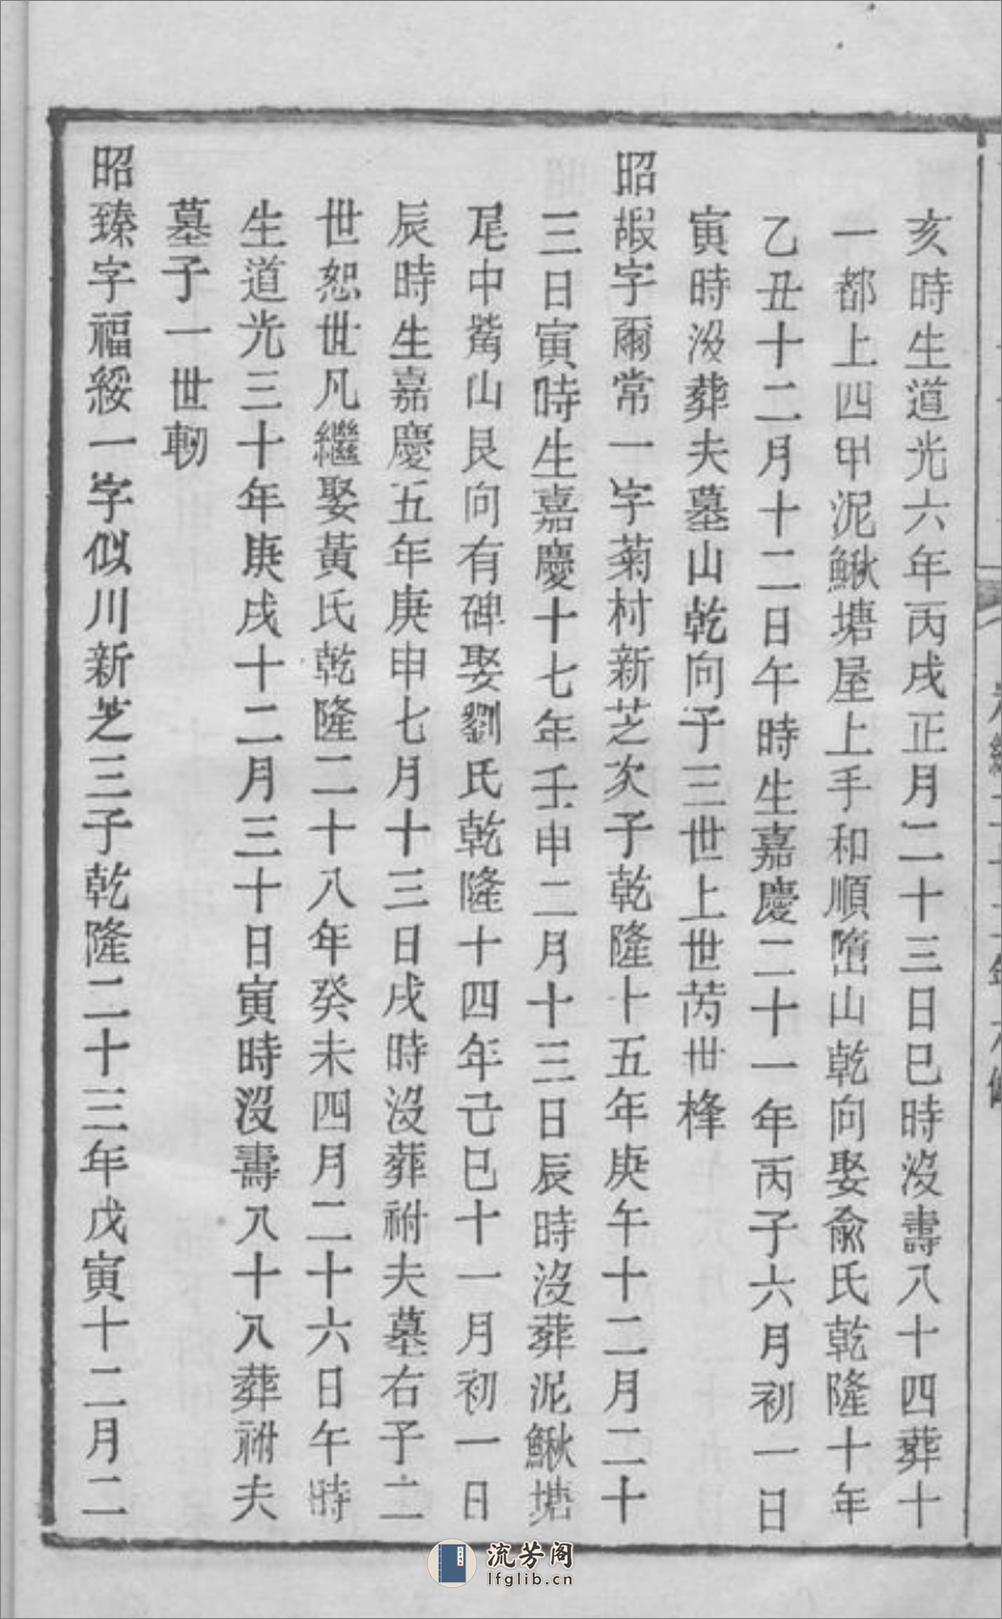 亥時生道光六年丙戌正月二十三日巳時沒壽八十四葬十
一都上四甲泥鰍塘屋上手和順山乾向娶俞氏乾隆十年
乙丑十二月十二日午時生嘉慶二十一年丙子六月初一日
寅時沒葬夫墓山乾向子三世上世芮世桻
昭嘏字爾常一字菊村新芝次子乾隆十五年庚午十二月二十
三日寅時生嘉慶十七年壬申二月十三日辰時沒葬泥鰍塘
尾中嵜山艮向有碑娶劉氏乾隆十四年己巳十一月初一日
辰時生嘉慶五年庚申七月十三日戌時沒葬祔夫墓右子二
世恕世凡繼娶黃氏乾隆二十八年癸未四月二十六日午時
生道光三十年庚戌十二月三十日寅時沒壽八十八葬祔夫
墓子一世軔
昭臻字福綏一字似川新芝三子乾隆二十三年戊寅十二月二
流芳阁
lfglib.cn